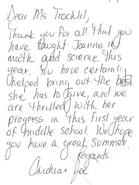 Dear Ms Trocklil,
Thank you for all that you
have taught Joanna in
math and science this
year. You have certainly
helped bring out the best
she has to give, and we
are thrilled with her
progress in this first year
of middle school. We hope
you have a great summer.
Regards,